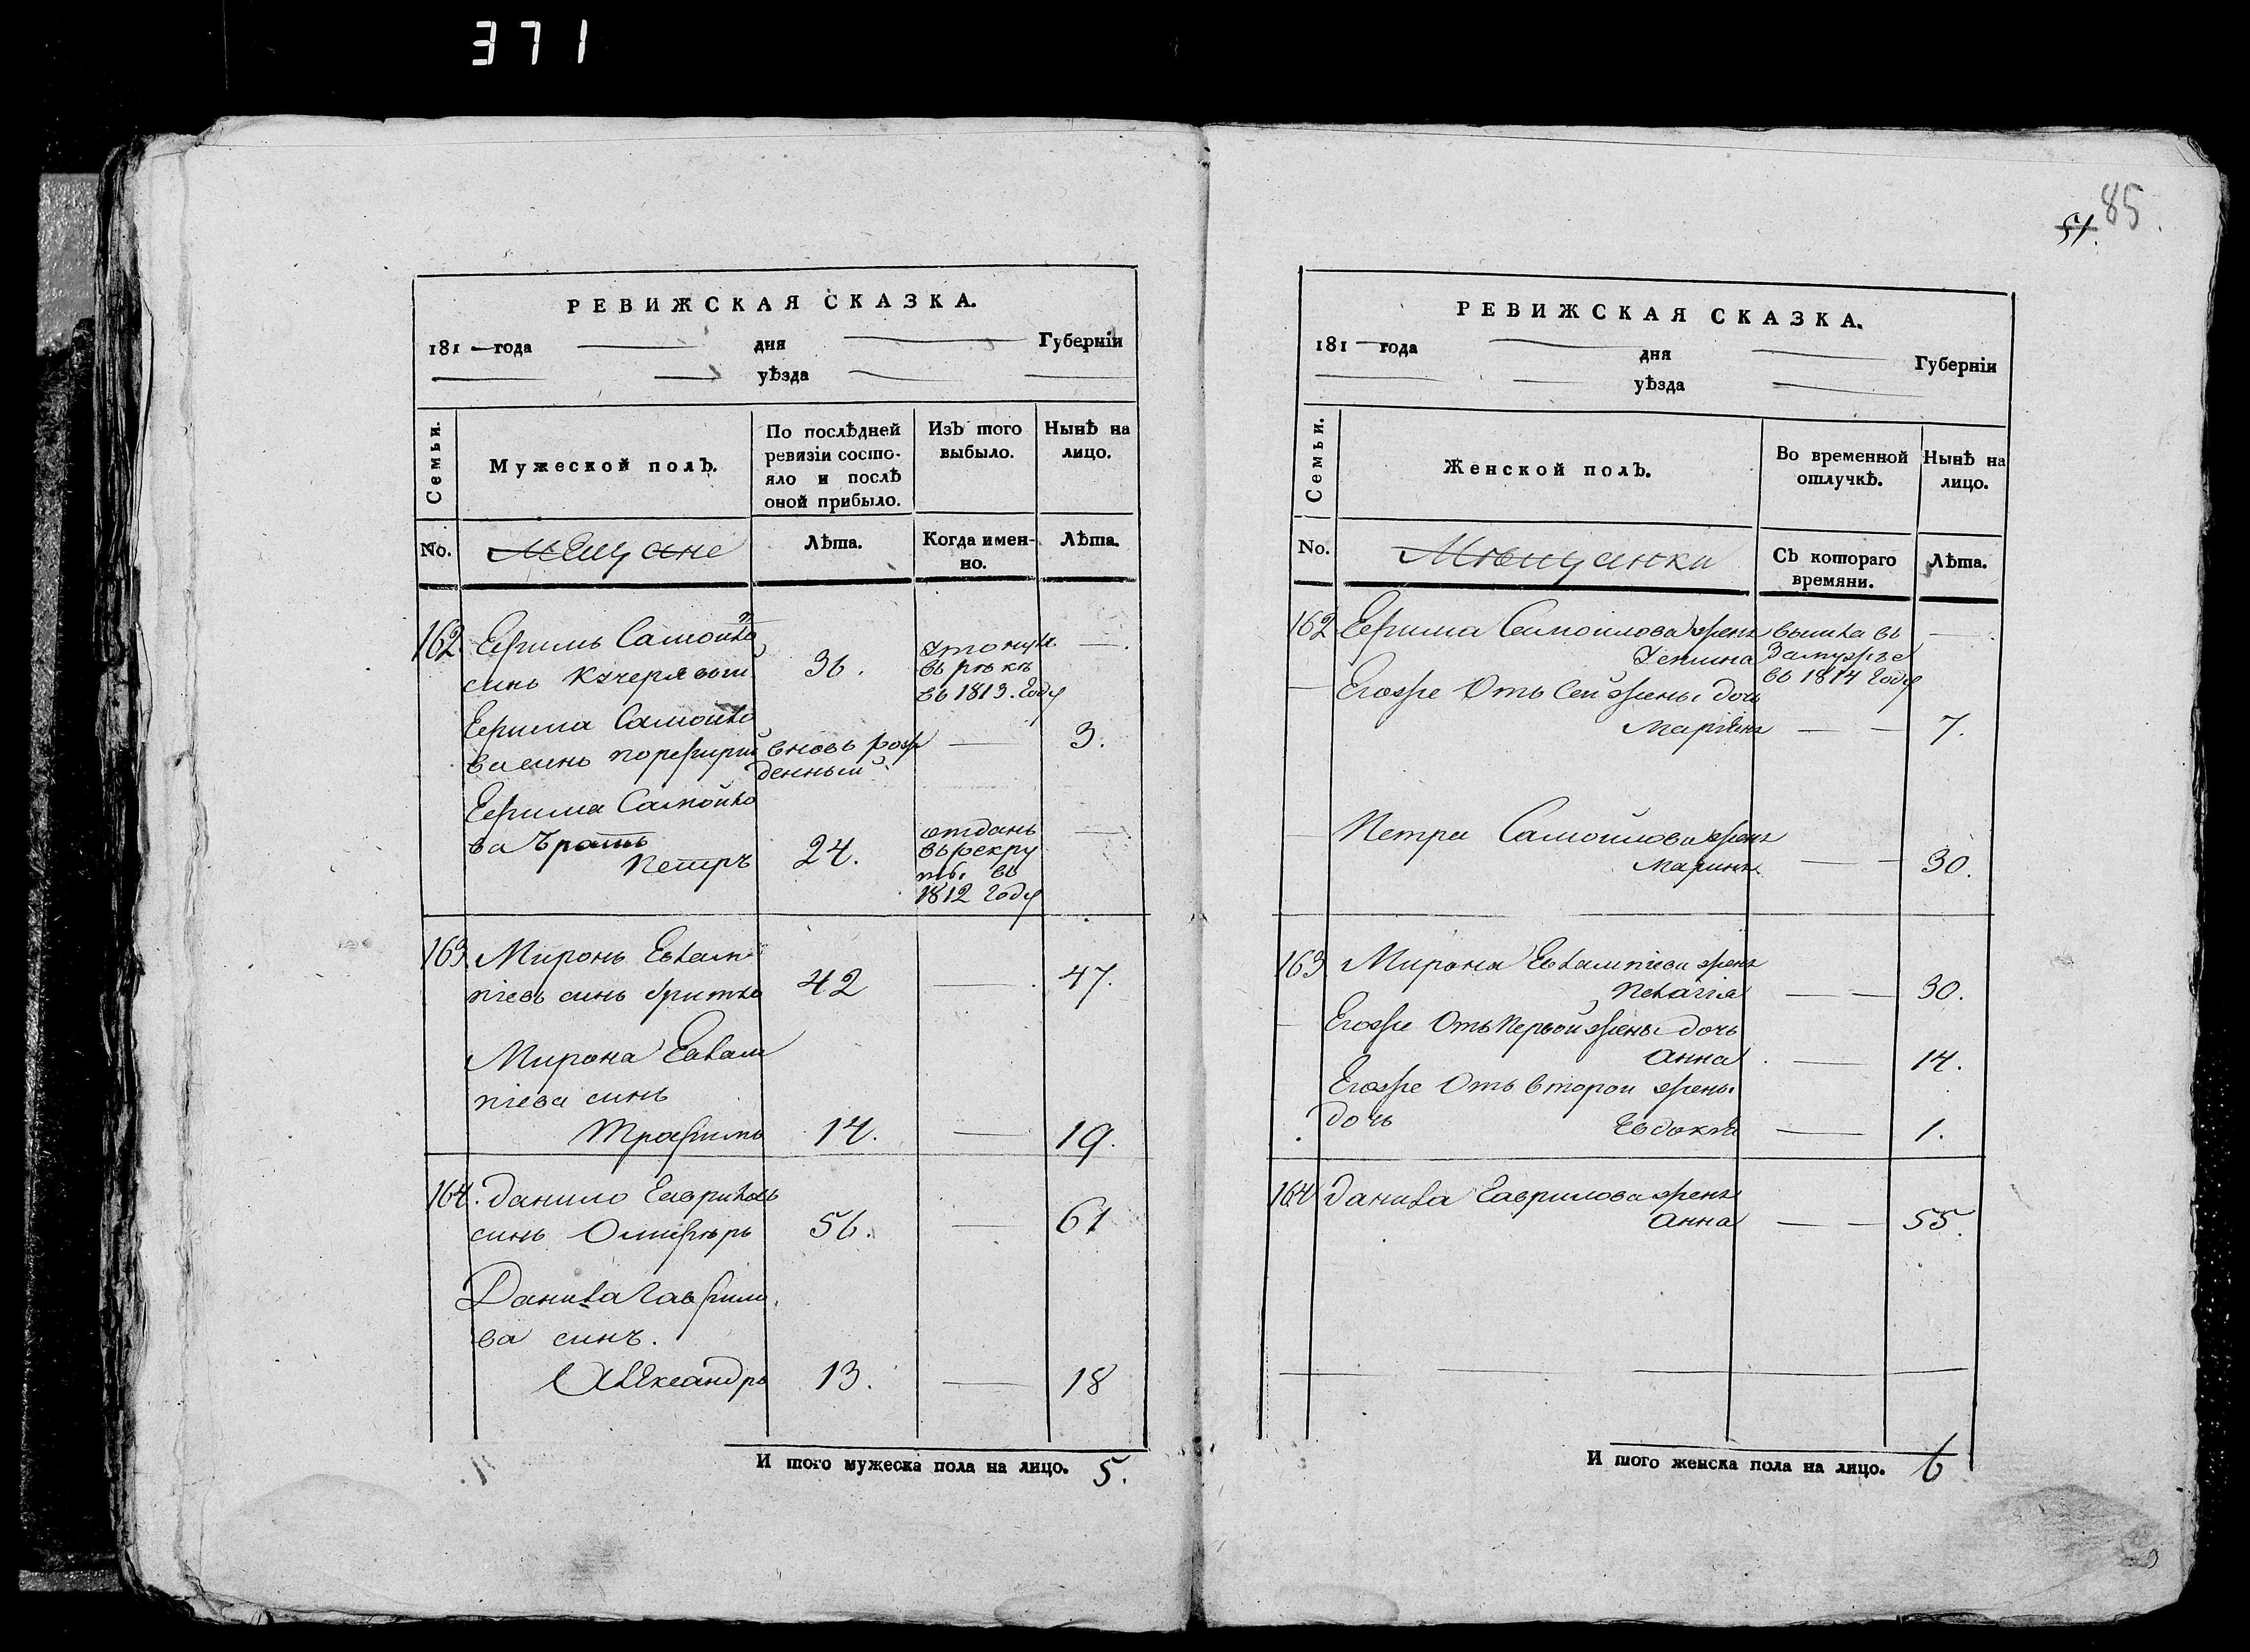 371
РЕВИЖСКАЯ СКАЗКА.
181 — года дня Губерніи
уѣзда
Семьи.
Мужеской полъ.
По послѣдней ревизіи состо-
яло и послѣ
оной прибыло.
Изъ того выбыло.
Нынѣ на лицо.
No.
Мещане
Лѣта.
Когда имен-
но.
Лѣта.
162. Ефимъ Самойло
синъ Кучерявый
36.
утонулъ
въ рѣкѣ
въ 1813. году
—.
Ефима Самойло
ва синъ порфирий
вновь рож
денный
—
3.
Ефима Самойло
ва братъ
Петръ
24.
отданъ
въ рекру
ты въ
1812 году
—
163. Миронъ Евламп
піевъ синъ
42
—
47.
Мирона Евлам
піева синъ
Трофимъ
14.
—
19.
164. Данило Гавриловъ
синъ
56.
—
61
Данила Гаврило
ва синъ.
Александръ
13.
—
18
И того мужеска пола на лицо. 5.
85.
57.
РЕВИЖСКАЯ СКАЗКА.
181 — года дня Губерніи
уѣзда
Семьи.
Женской полъ.
Во временной отлучкѣ.
Нынѣ на лицо.
No.
Мѣщанки
Съ котораго
времяни.
Лѣта.
162 Ефима Самоилова жена
вышла въ
замужъе
въ 1814 году
—
Егожъ Отъ Сей жены дочь
Маріяна
— —
7.
Петра Самоилова жена
Марина
— —
30.
163 Мирона Евлампіева жена
Пелагія
— —
30.
Егоже Отъ Первой жены дочь
Анна
—
14.
Егоже Отъ второй жены
дочь Евдокія
—
1.
164 Данила Гаврилова жена
Анна
— —
55.
И того женска пола на лицо. 6